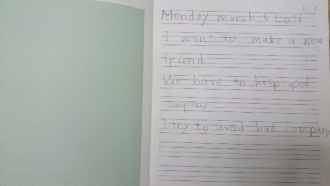 Monday march 6 cold
I want to make a new
friend
We have to keep good
company
I try to avoid bad company